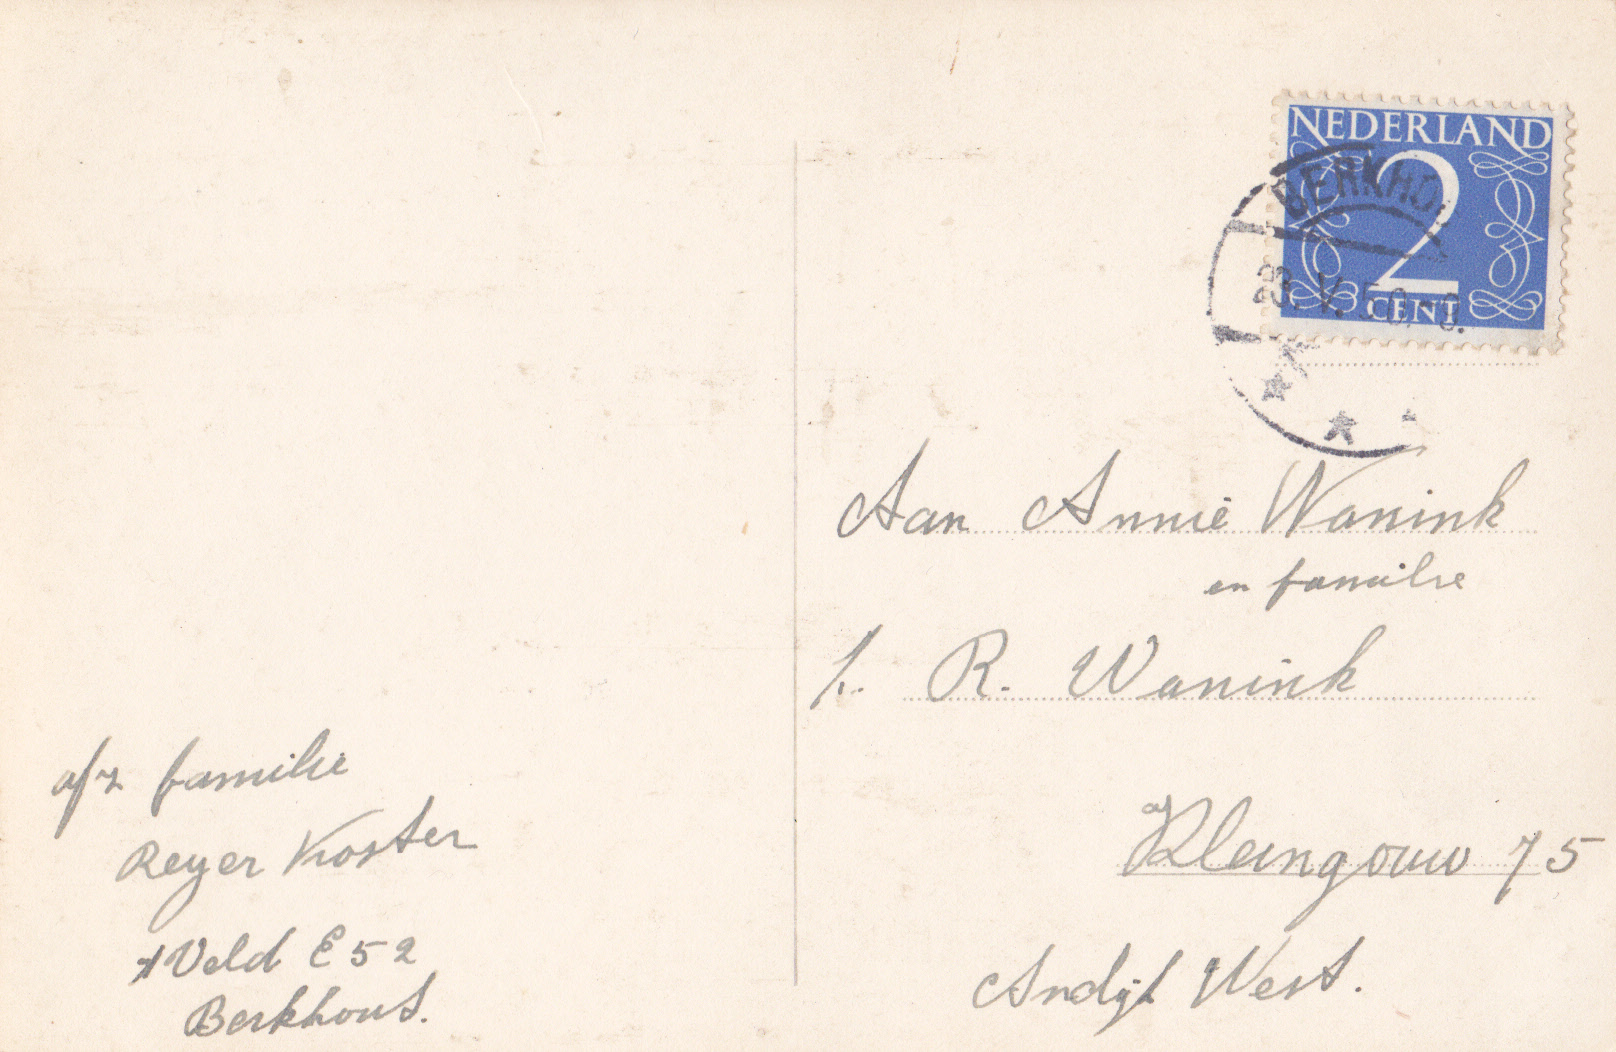 NEDERLAND
2
CENT
BERKHO
23. V. 50.-8.
Aan Annie Wanink
en familie
R. Wanink
Kleingouw 75
Andijk West.
afz familie
Reyer Koster
Veld E 52
Berkhout.